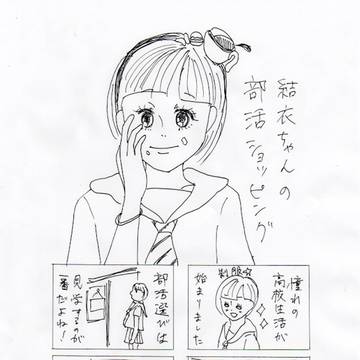 結衣ちゃんの
部活ショッピング
憧れの
高校生活が
始まりました
制服☆
部活選びは
見学するのが
一番だよね!